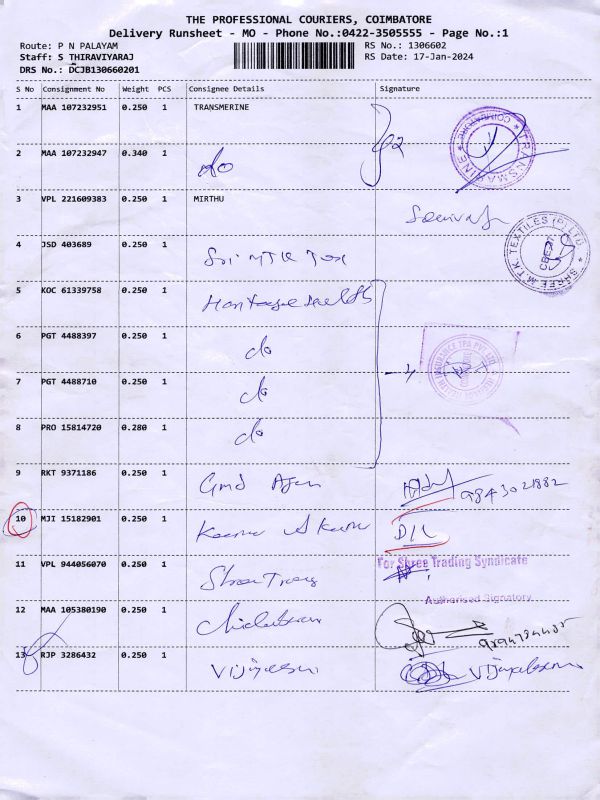 THE PROFESSIONAL COURIERS, COIMBATORE
Delivery Runsheet - MO - Phone No.:0422-3505555 - Page No.:1
Route: P N PALAYAM
RS No.: 1306602
Staff: S THIRAVIYARAJ
RS Date: 17-Jan-2024
DRS No.: DCJB130660201
S No Consignment No Weight PCS Consignee Details Signature
1 MAA 107232951 0.250 1 TRANSMERINE
TRANSMARINE * COIMBATORE *
2 MAA 107232947 0.340 1 do
3 VPL 221609383 0.250 1 MIRTHU
SHREE M.T.K. TEXTILES (P) LTD * CBE
4 JSD 403689 0.250 1 Sri MTK Tex
5 KOC 61339758 0.250 1
6 PGT 4488397 0.250 1 do
7 PGT 4488710 0.250 1 do
8 PRO 15814720 0.280 1 do
9 RKT 9371186 0.250 1 9843021882
10 MJI 15182901 0.250 1 D/L
11 VPL 944056070 0.250 1
For Shree Trading Syndicate
Authorised Signatory
12 MAA 105380190 0.250 1
13 RJP 3286432 0.250 1